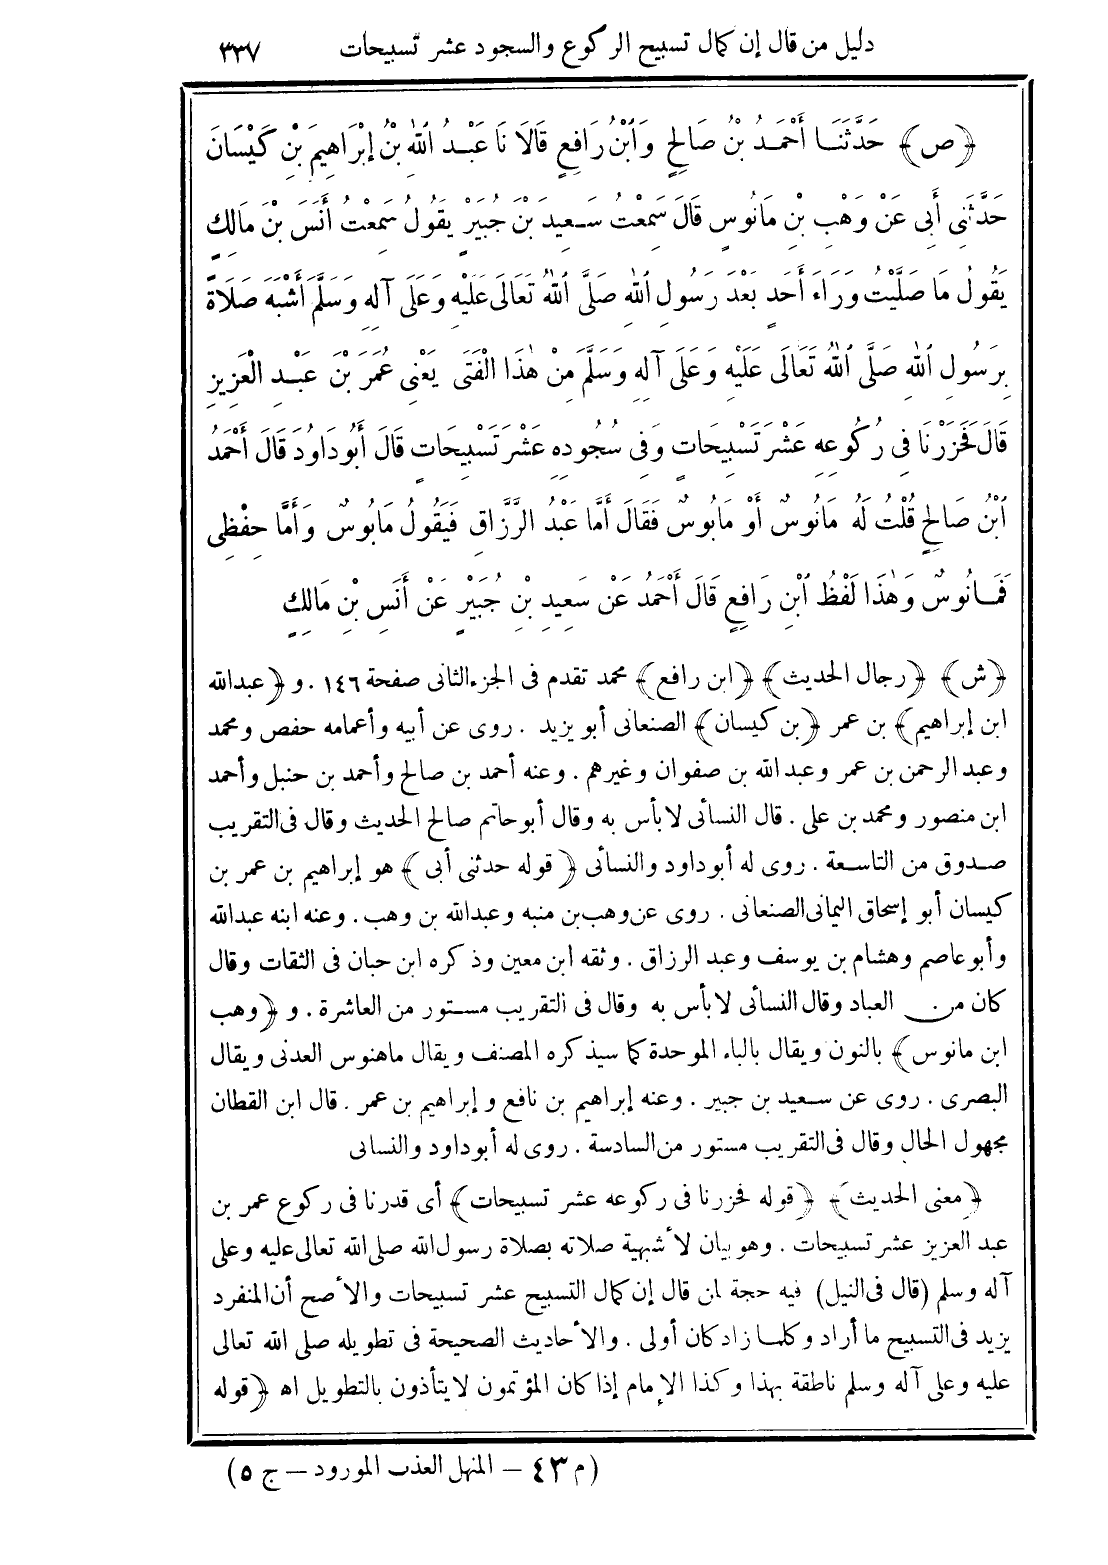 دليل من قال إن كمال تسبيح الركوع والسجود عشر تسبيحات ٣٣٧
﴿ص﴾ حَدَّثَنَا أَحْمَدُ بْنُ صَالِحٍ وَٱبْنُ رَافِعٍ قَالَا نَا عَبْدُ ٱللهِ بْنُ إِبْرَاهِيمَ بْنِ كَيْسَانَ
حَدَّثَنِى أَبِى عَنْ وَهْبِ بْنِ مَانُوسٍ قَالَ سَمِعْتُ سَعِيدَ بْنَ جُبَيْرٍ يَقُولُ سَمِعْتُ أَنَسَ بْنَ مَالِكٍ
يَقُولُ مَا صَلَّيْتُ وَرَاءَ أَحَدٍ بَعْدَ رَسُولِ ٱللهِ صَلَّى ٱللهُ تَعَالَى عَلَيْهِ وَعَلَى آلِهِ وَسَلَّمَ أَشْبَهَ صَلَاةً
بِرَسُولِ ٱللهِ صَلَّى ٱللهُ تَعَالَى عَلَيْهِ وَعَلَى آلِهِ وَسَلَّمَ مِنْ هٰذَا الْفَتَى يَعْنِى عُمَرَ بْنَ عَبْدِ الْعَزِيزِ
قَالَ فَحَزَرْنَا فِى رُكُوعِهِ عَشْرَ تَسْبِيحَاتٍ وَفِى سُجُودِهِ عَشْرَ تَسْبِيحَاتٍ قَالَ أَبُو دَاوُدَ قَالَ أَحْمَدُ
ٱبْنُ صَالِحٍ قُلْتُ لَهُ مَانُوسٌ أَوْ مَابُوسٌ فَقَالَ أَمَّا عَبْدُ الرَّزَّاقِ فَيَقُولُ مَابُوسٌ وَأَمَّا حِفْظِى
فَمَانُوسٌ وَهٰذَا لَفْظُ ٱبْنِ رَافِعٍ قَالَ أَحْمَدُ عَنْ سَعِيدِ بْنِ جُبَيْرٍ عَنْ أَنَسِ بْنِ مَالِكٍ
﴿ش﴾ ﴿رجال الحديث﴾ ﴿ابن رافع﴾ محمد تقدم فى الجزء الثانى صفحة ١٤٦ . و ﴿عبدالله
ابن إبراهيم﴾ بن عمر ﴿بن كيسان﴾ الصنعانى أبو يزيد . روى عن أبيه وأعمامه حفص ومحمد
وعبد الرحمن بن عمر وعبد الله بن صفوان وغيرهم . وعنه أحمد بن صالح وأحمد بن حنبل وأحمد
ابن منصور ومحمد بن على . قال النسائى لا بأس به وقال أبو حاتم صالح الحديث وقال فى التقريب
صدوق من التاسعة . روى له أبو داود والنسائى ﴿قوله حدثنى أبى﴾ هو إبراهيم بن عمر بن
كيسان أبو إسحاق اليمانى الصنعانى . روى عن وهب بن منبه وعبدالله بن وهب . وعنه ابنه عبدالله
وأبو عاصم وهشام بن يوسف وعبد الرزاق . وثقه ابن معين وذكره ابن حبان فى الثقات وقال
كان من العباد وقال النسائى لا بأس به وقال فى التقريب مستور من العاشرة . و ﴿وهب
ابن مانوس﴾ بالنون ويقال بالباء الموحدة كما سيذكره المصنف ويقال ماهنوس العدنى ويقال
البصرى . روى عن سعيد بن جبير . وعنه إبراهيم بن نافع وإبراهيم بن عمر . قال ابن القطان
مجهول الحال وقال فى التقريب مستور من السادسة . روى له أبو داود والنسائى
﴿معنى الحديث﴾ ﴿قوله فحزرنا فى ركوعه عشر تسبيحات﴾ أى قدرنا فى ركوع عمر بن
عبد العزيز عشر تسبيحات . وهو بيان لأشبهية صلاته بصلاة رسول الله صلى الله تعالى عليه وعلى
آله وسلم (قال فى النيل) فيه حجة لمن قال إن كمال التسبيح عشر تسبيحات والأصح أن المنفرد
يزيد فى التسبيح ما أراد وكلما زاد كان أولى . والأحاديث الصحيحة فى تطويله صلى الله تعالى
عليه وعلى آله وسلم ناطقة بهذا وكذا الإمام إذا كان المؤتمون لا يتأذون بالتطويل اه ﴿قوله
(م ٤٣ – المنهل العذب المورود – ج ٥)